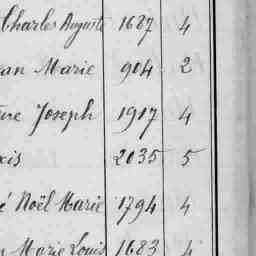 Charles Auguste 1687 4
an Marie 904 2
re Joseph 1917 4
xis 2035 5
é Noël Marie 1794 4
Marie Louis 1683 4